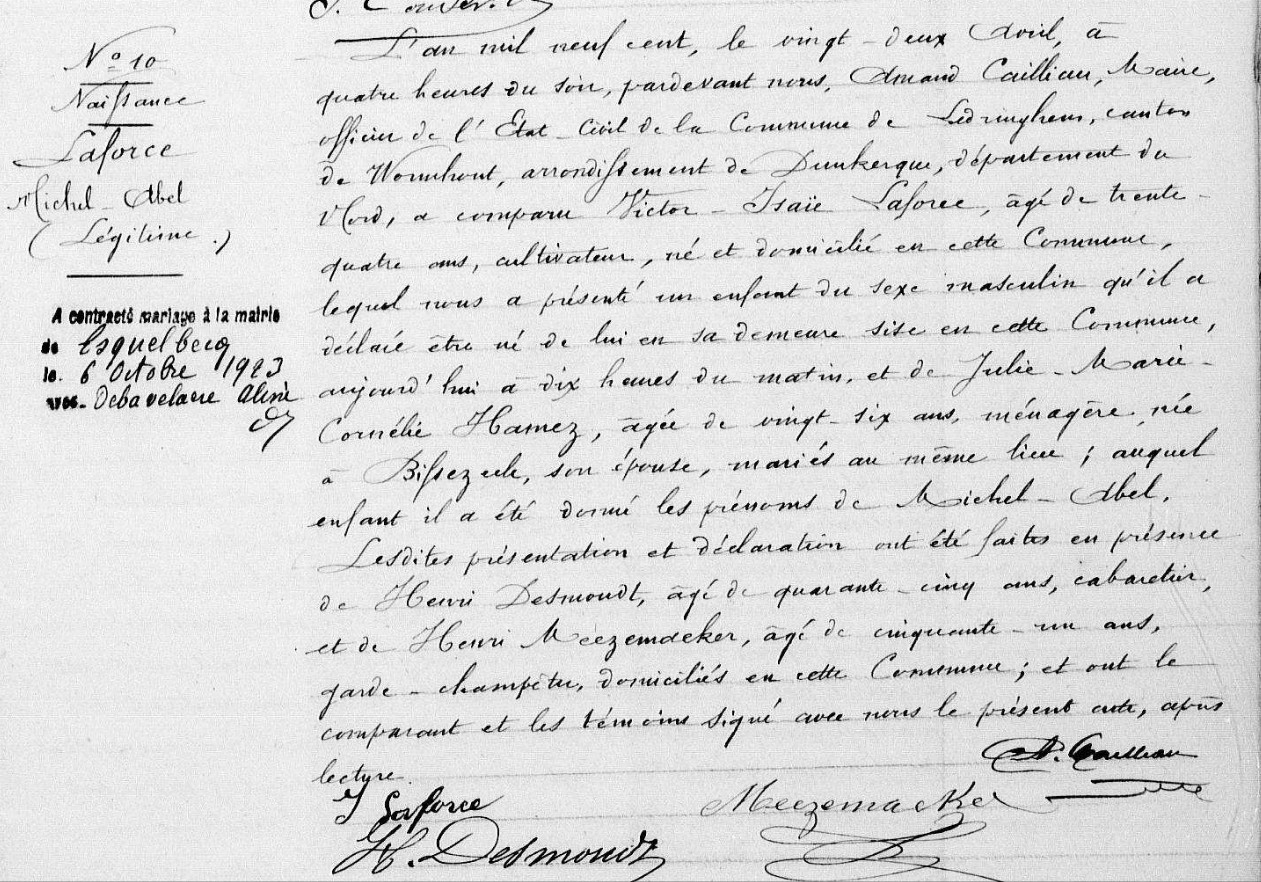 N° 10
Naissance
Laforce
Michel-Abel
(Légitime.)
A contracté mariage à la mairie
de Esquelbecq
le 6 Octobre 1923
avec Debavelaere Aline
L'an mil neuf cent, le vingt-deux Avril, à
quatre heures du soir, pardevant nous, Amand Cailliau, Maire,
officier de l'Etat-Civil de la Commune de Ledringhem, canton
de Wormhout, arrondissement de Dunkerque, département du
Nord, a comparu Victor-Isaïe Laforce, âgé de trente-
quatre ans, cultivateur, né et domicilié en cette Commune,
lequel nous a présenté un enfant du sexe masculin qu'il a
déclaré être né de lui en sa demeure sise en cette Commune,
aujourd'hui à dix heures du matin, et de Julie-Marie-
Cornélie Hamez, âgée de vingt-six ans, ménagère, née
à Bissezeele, son épouse, mariés au même lieu; auquel
enfant il a été donné les prénoms de Michel-Abel.
Lesdites présentation et déclaration ont été faites en présence
de Henri Desmoudt, âgé de quarante-cinq ans, cabaretier,
et de Henri Meezemaeker, âgé de cinquante-un ans,
garde-champêtre, domiciliés en cette Commune; et ont le
comparant et les témoins signé avec nous le présent acte, après
lecture.
A. Cailliau
Laforce
Meezemaeker
H. Desmoudt